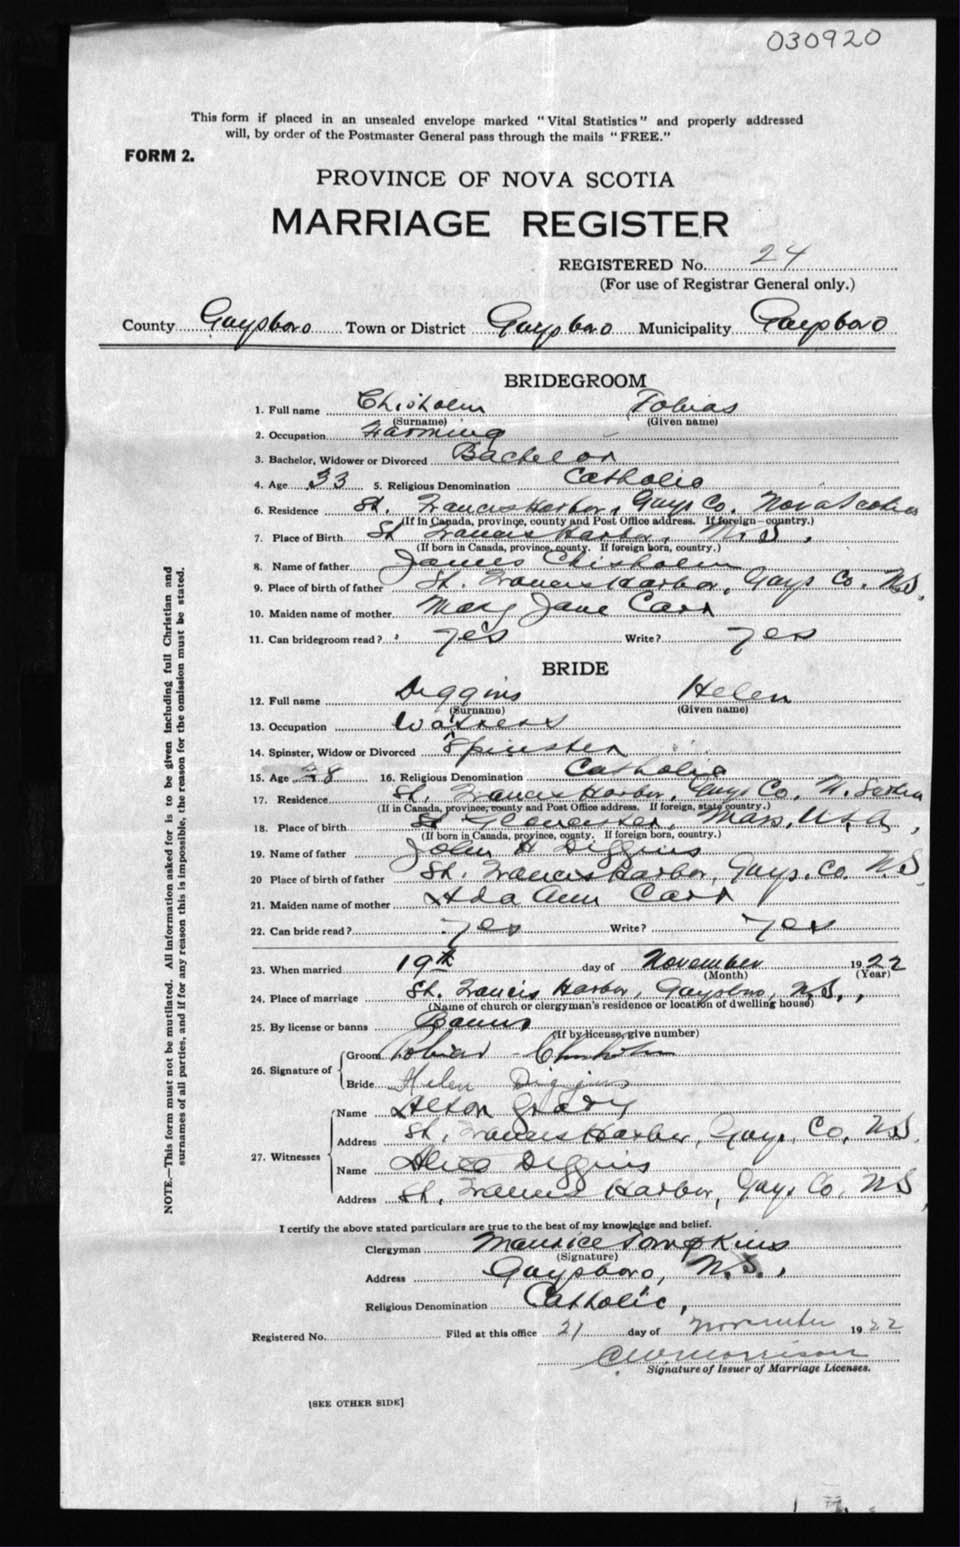 030920
This form if placed in an unsealed envelope marked "Vital Statistics" and properly addressed
will, by order of the Postmaster General pass through the mails "FREE."
FORM 2.
PROVINCE OF NOVA SCOTIA
MARRIAGE REGISTER
REGISTERED No. 24
(For use of Registrar General only.)
County Guysboro Town or District Guysboro Municipality Guysboro
BRIDEGROOM
1. Full name Chisholm Tobias
(Surname) (Given name)
2. Occupation Farming
3. Bachelor, Widower or Divorced Bachelor
4. Age 33 5. Religious Denomination Catholic
6. Residence St. Francis Harbor, Guys Co. Nova Scotia
(If in Canada, province, county and Post Office address. If foreign—country.)
7. Place of Birth St Francis Harbor, N.S.,
(If born in Canada, province, county. If foreign born, country.)
8. Name of father James Chisholm
9. Place of birth of father St. Francis Harbor, Guys Co. N.S.
10. Maiden name of mother Mary Jane Carr
11. Can bridegroom read? yes Write? yes
BRIDE
12. Full name Diggins Helen
(Surname) (Given name)
13. Occupation
14. Spinster, Widow or Divorced Spinster
15. Age 28 16. Religious Denomination Catholic
17. Residence St. Francis Harbor, Guys Co, N. Scotia
(If in Canada, province, county and Post Office address. If foreign, state country.)
18. Place of birth Gloucester, Mass, USA,
(If born in Canada, province, county. If foreign born, country.)
19. Name of father John H Diggins
20 Place of birth of father St. Francis Harbor, Guys. Co. N.S.
21. Maiden name of mother Ada Ann Carr
22. Can bride read? yes Write? yes
23. When married 19th day of November 1922
(Month) (Year)
24. Place of marriage St. Francis Harbor, Guysboro, N.S.,
(Name of church or clergyman's residence or location of dwelling house)
25. By license or banns Banns
(If by license, give number)
26. Signature of Groom Tobias Chisholm
Bride Helen Diggins
27. Witnesses Name Alton Grady
Address St. Francis Harbor, Guys. Co, N.S.
Name Diggins
Address St. Francis Harbor, Guys Co, N S
I certify the above stated particulars are true to the best of my knowledge and belief.
Clergyman Maurice Tompkins
(Signature)
Address Guysboro, N.S.,
Religious Denomination Catholic,
Registered No. Filed at this office 21 day of November 1922
C.W. Morrison
Signature of Issuer of Marriage Licenses.
[SEE OTHER SIDE]
NOTE.—This form must not be mutilated. All information asked for is to be given including full Christian and
surnames of all parties, and if for any reason this is impossible, the reason for the omission must be stated.